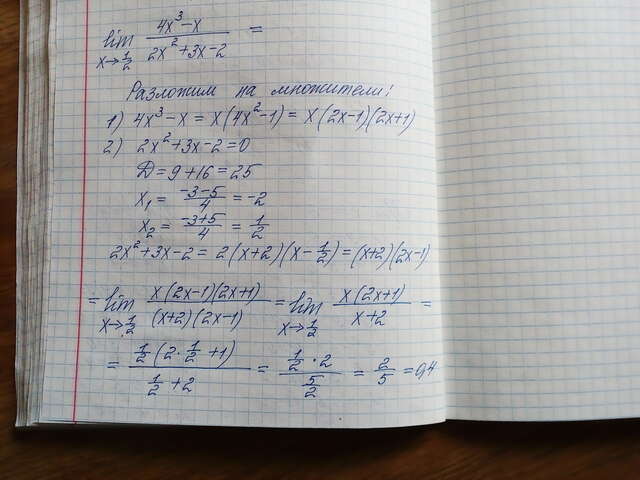 lim x→1/2 (4x³-x)/(2x²+3x-2) =
Разложим на множители:
1) 4x³-x = x(4x²-1) = x(2x-1)(2x+1)
2) 2x²+3x-2=0
D=9+16=25
x₁ = (-3-5)/4 = -2
x₂ = (-3+5)/4 = 1/2
2x²+3x-2 = 2(x+2)(x-1/2) = (x+2)(2x-1)
= lim x→1/2 (x(2x-1)(2x+1))/((x+2)(2x-1)) = lim x→1/2 (x(2x+1))/(x+2) =
= (1/2(2·1/2+1))/(1/2+2) = (1/2·2)/(5/2) = 2/5 = 0,4